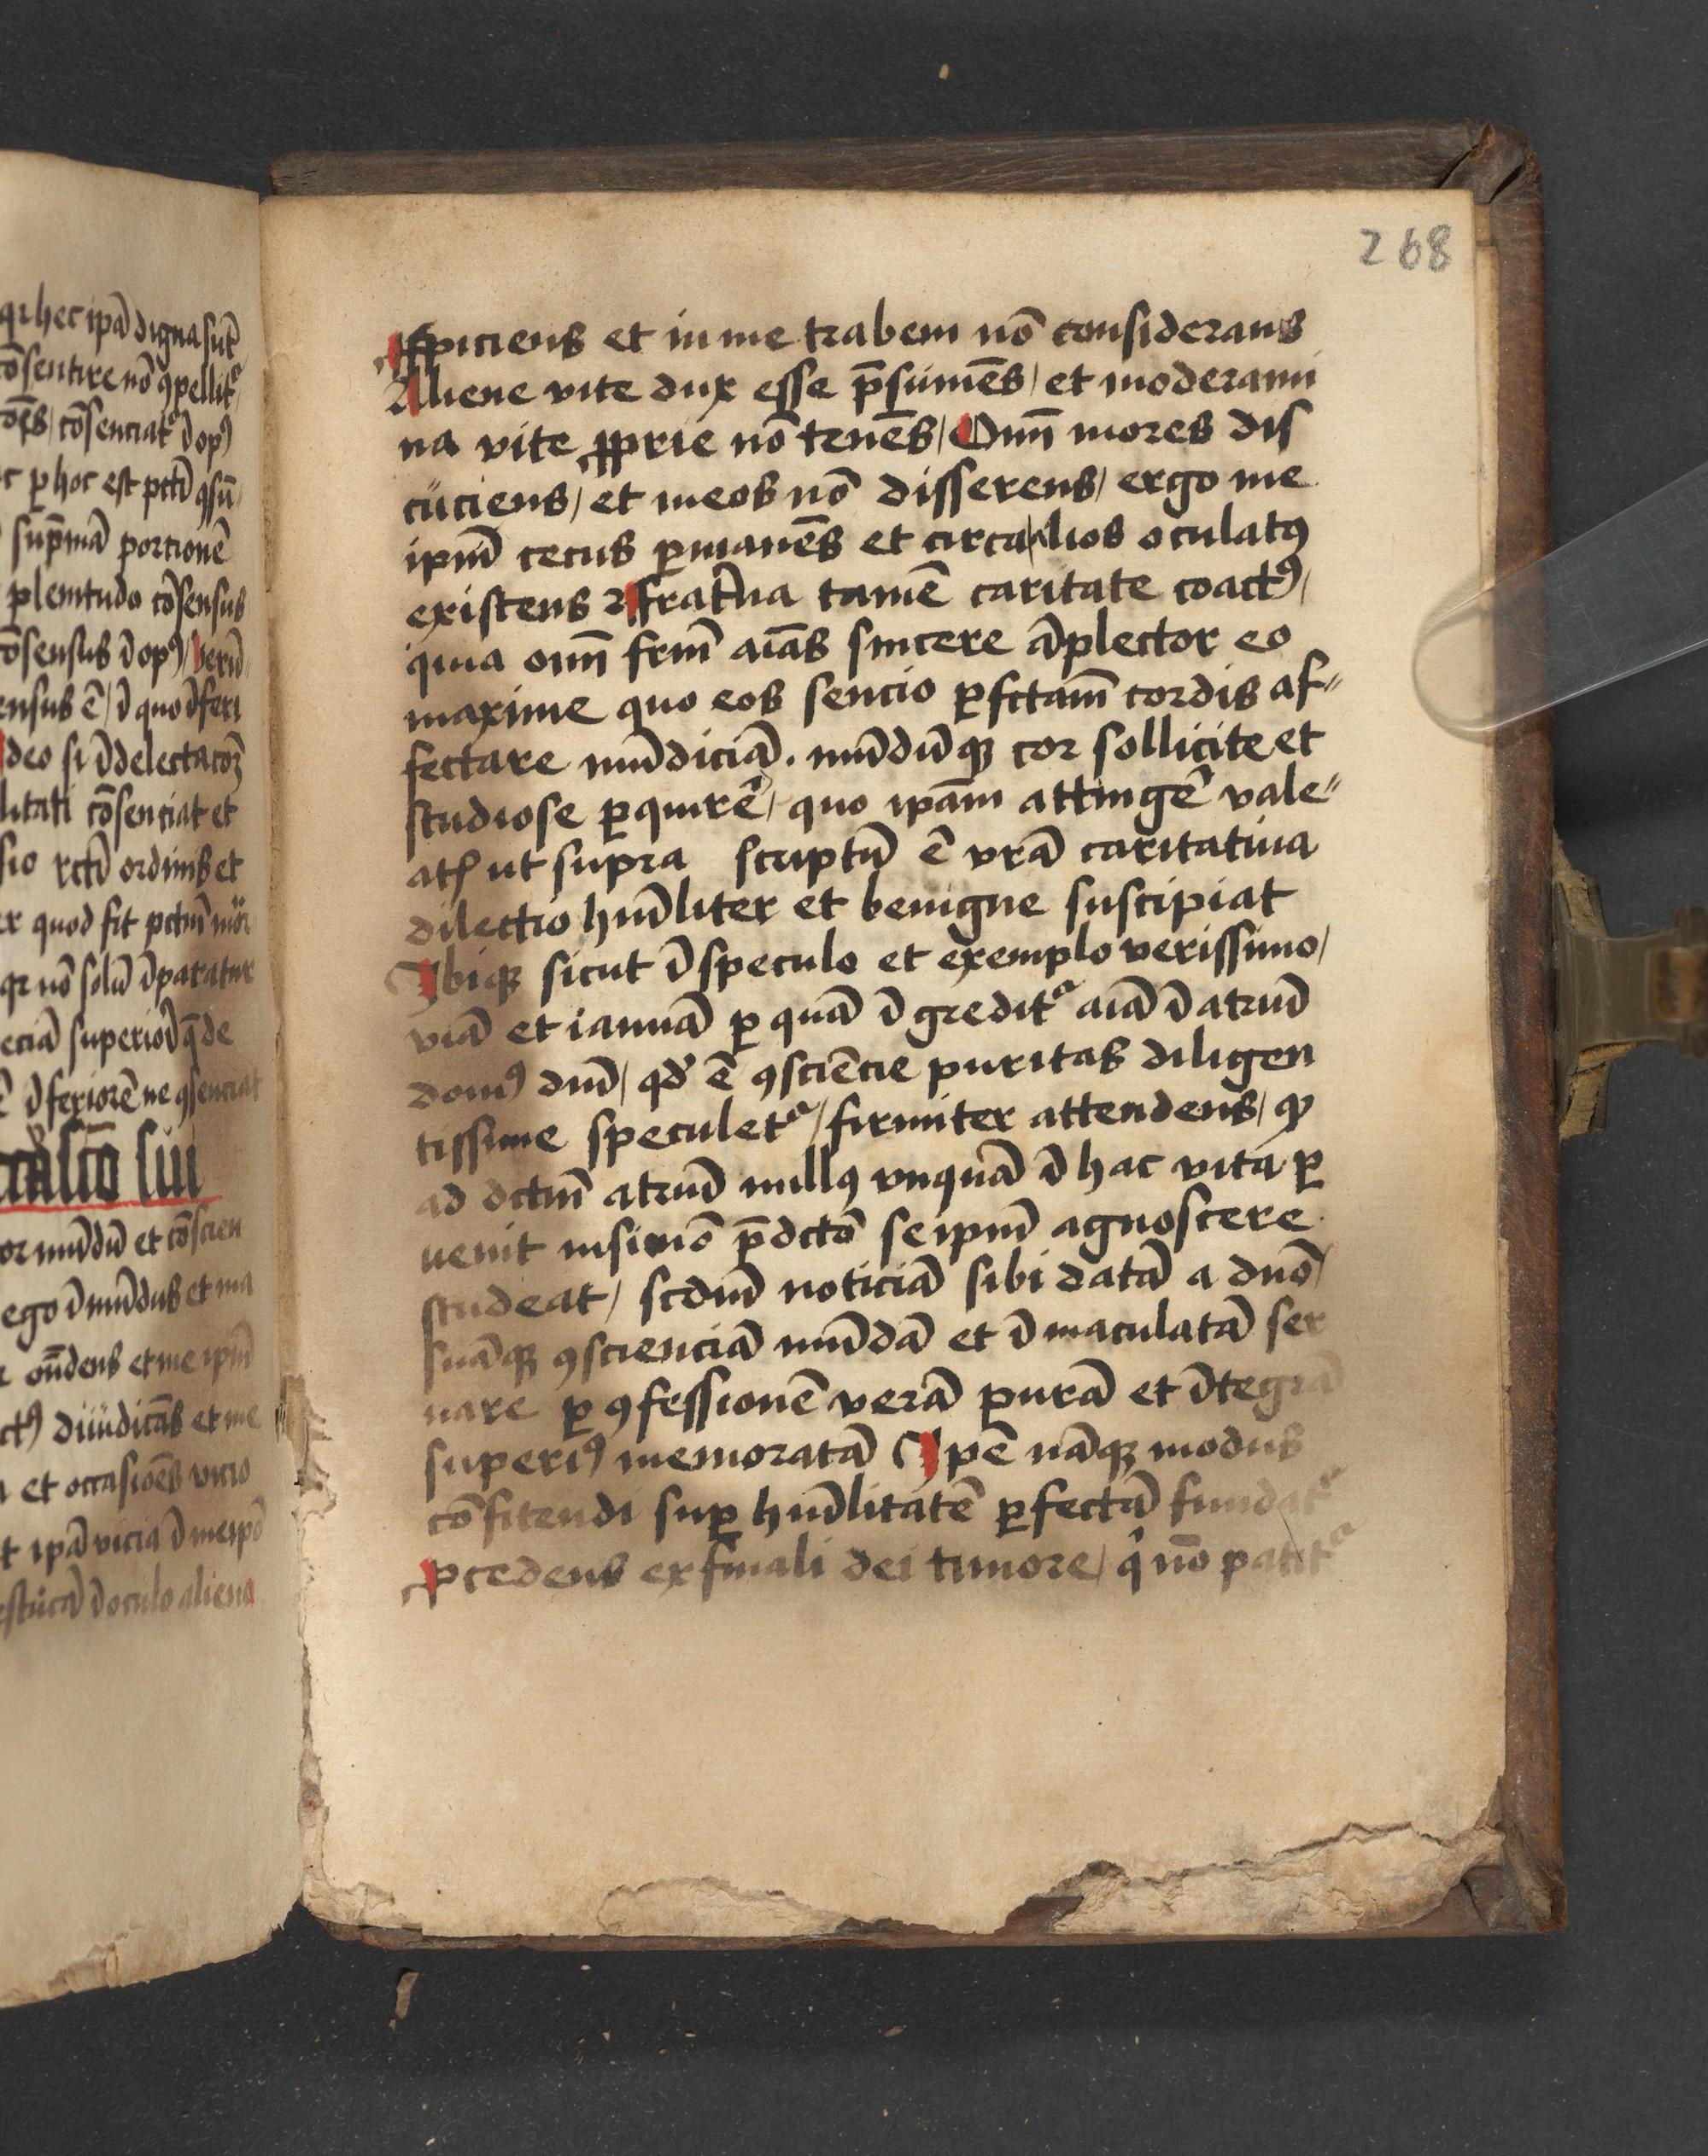 qr hec ipā digna sūt
cōsentire nō ꝯpellitᷣ
cōsenciat ī opꝰ
ꝑ hoc est pctī ꝯsū
sup̄mā porcionē
plenitudo cōsensus
cōsensus ī opꝰ / verū
ensus ē / ī quo īferi
deo si ī delectacōꝫ
cōsenciat et
rctī ordinis et
quod fit pctm̄ mor
qr nō solū īparatur
eciā superiorē qꝫ de
īferiorē ne ꝯsenciat
mūdū et cōscien
ego īmūdus et ma
ōndens et me ipm̄
diiudicās et me
et occasiōes vicio
ipā vicia ī meipō
festucā ī oculo alieno
268
ꝓspiciens et in me trabem nō considerans
Aliene vite dux esse p̄sumēs / et moderami
na vite ꝓprie nō tenēs / Omī mores dis
cuciens / et meos nō disserens / ergo me
ipm̄ cecus ꝑmanēs et circa alios oculatꝰ
existens ⁊ frat̄na tamē caritate coactꝰ /
quia omī frm̄ aīas sincere āplector eo
maxime quo eos sencio ꝑfctam̄ cordis af〃
fectare mūdiciā . mūdūqꝫ cor sollicite et
studiose ꝑquirē / quo ipam̄ attingē vale〃
at ut supra scriptū ē vrā caritatiua
dilectio hūiliter et benigne suscipiat
Ibiqꝫ sicut ī speculo et exemplo verissimo /
viā et ianuā ꝑ quā īgreditᷣ aīa ī atriū
domꝰ dnī / qd̄ ē ꝯsciēcie puritas diligen
tissime speculetᷣ / firmiter attendens / ꝙ
ad dctm̄ atriū nullꝰ vnquā ī hac vita ꝑ
uenit nisi mō p̄dcto seipm̄ agnoscere
studeat / scdm̄ noticiā sibi datā a dnō /
suāqꝫ ꝯscienciā mūdā et īmaculatā ser
uare ꝑ ꝯfessionē verā purā et ītegrā
superiꝰ memoratā Ipē nāqꝫ modus
cōfitendi sup̄ hūilitatē ꝑfectā fundatᷣ
ꝓcedens ex finali dei timore / qͥ nō patitᷣ